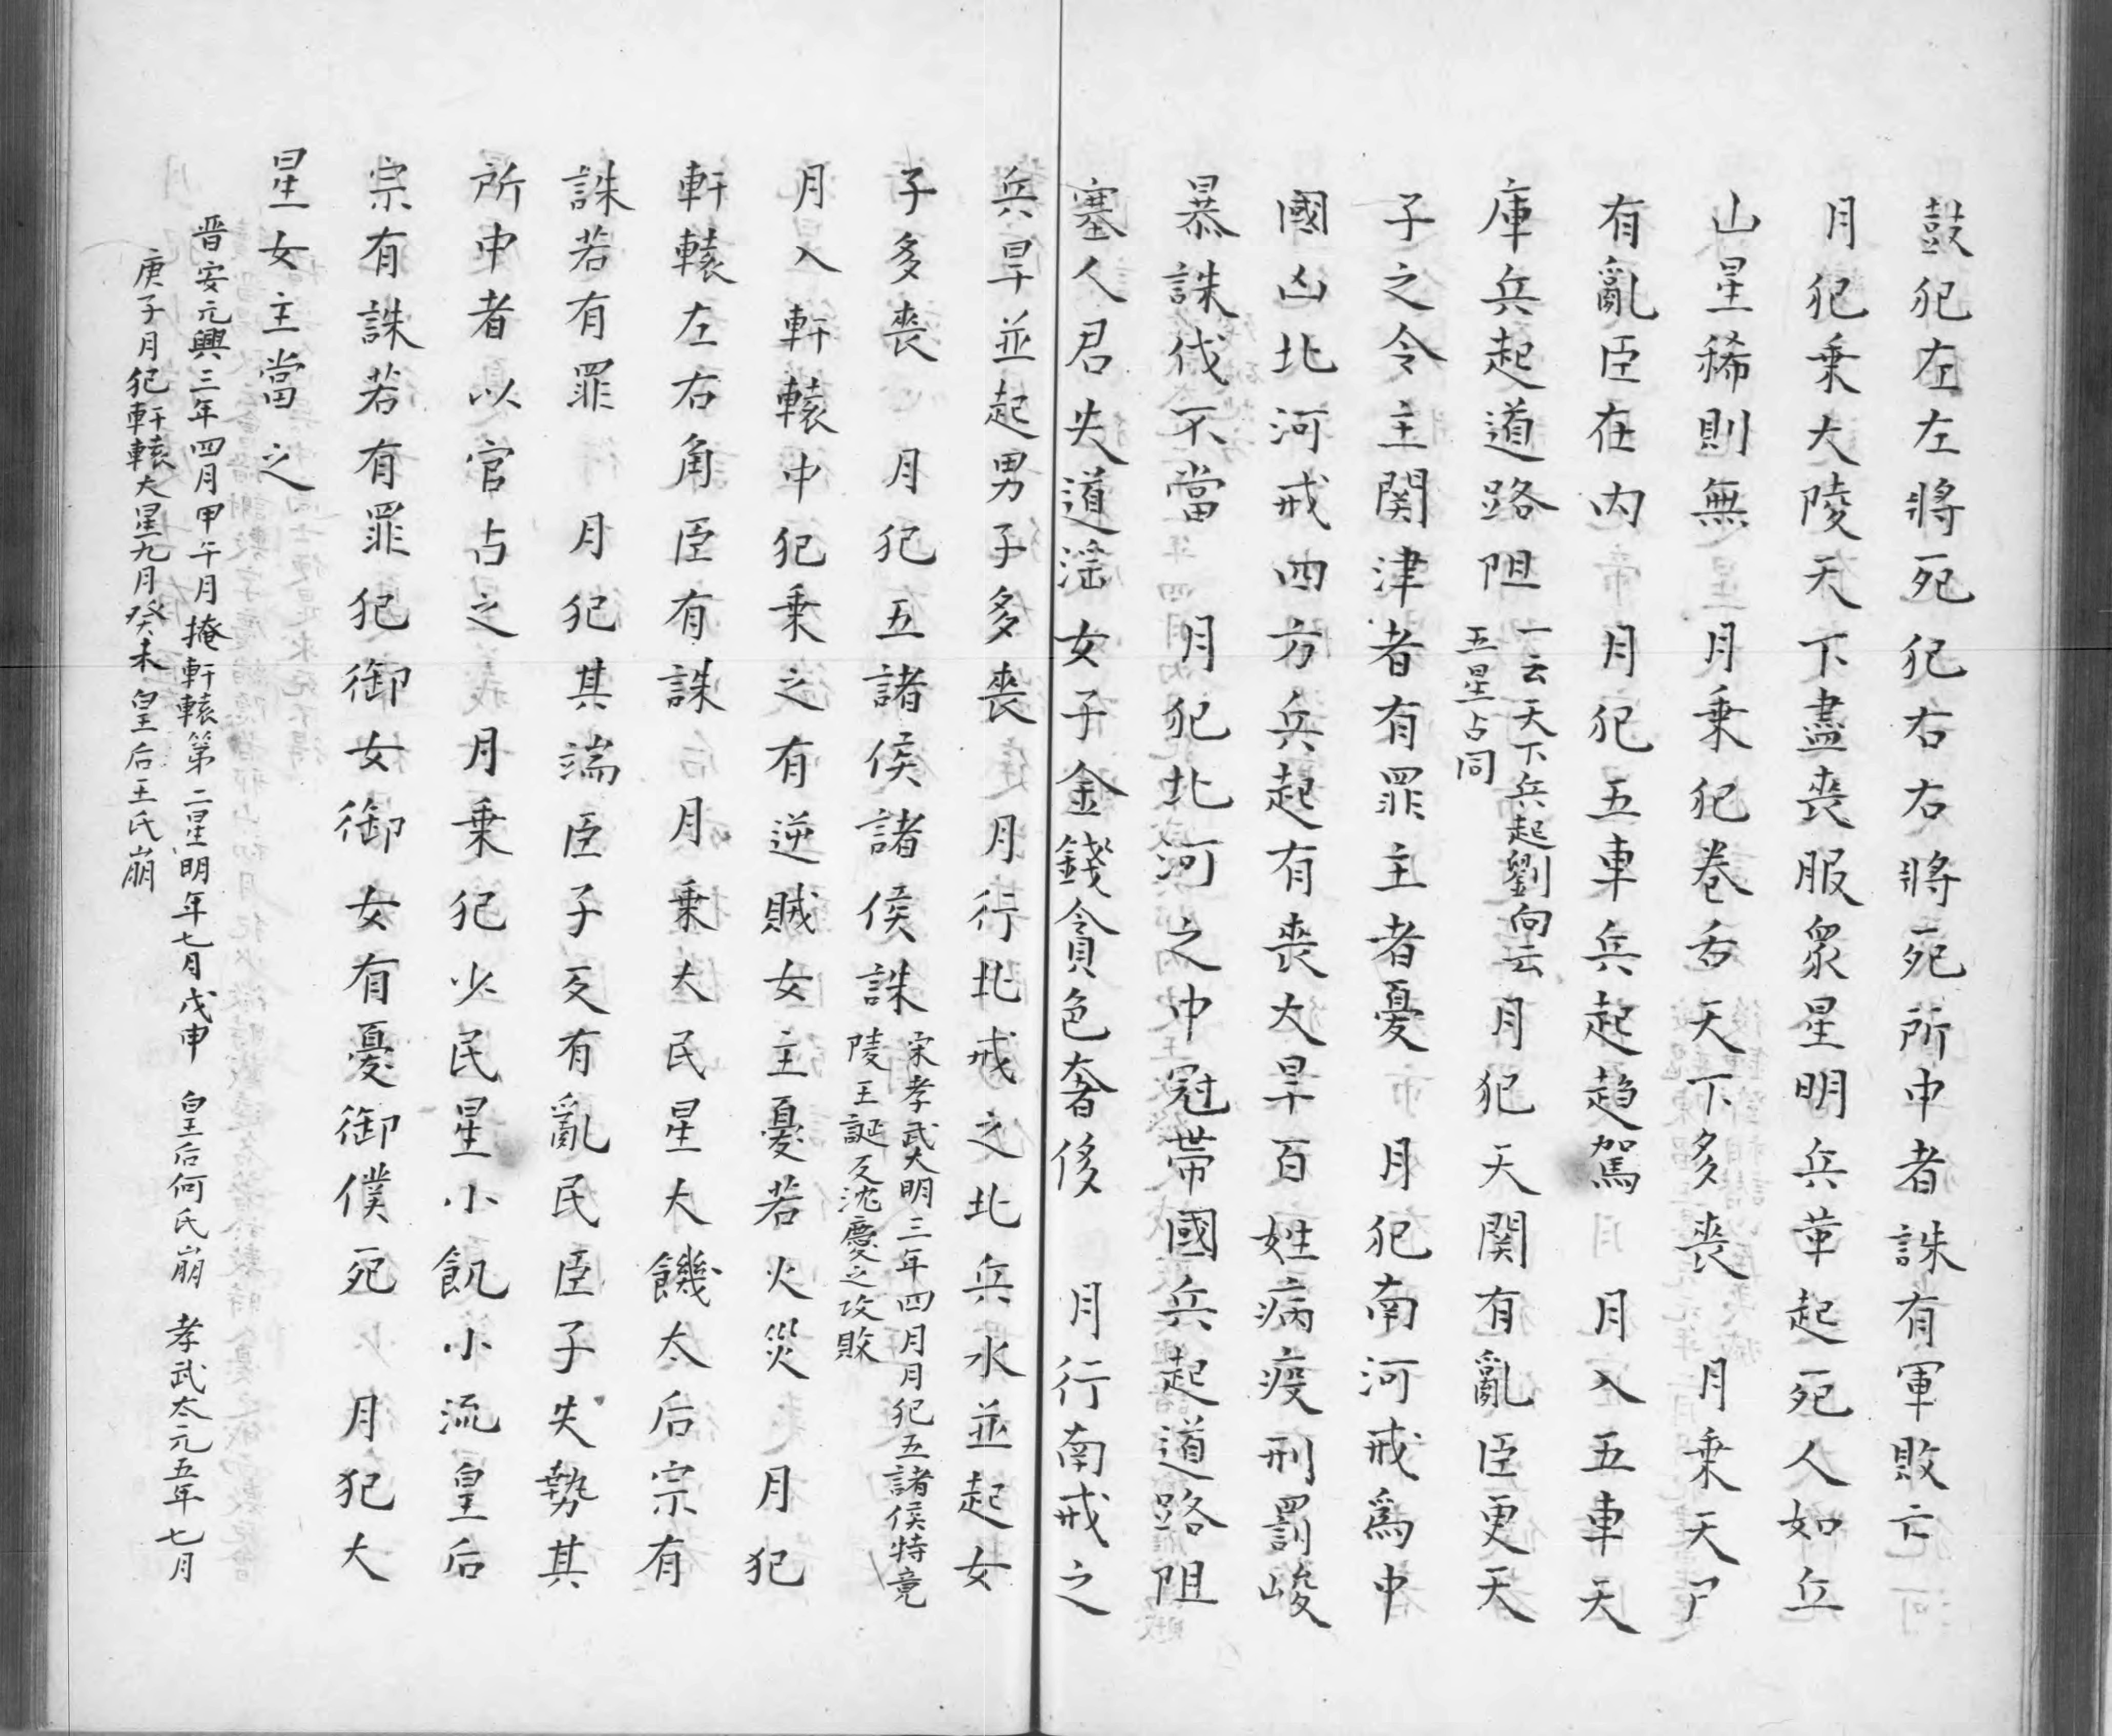 鼓犯左左將死犯右右將死所中者誅有軍敗亡
月犯乗大陵天下盡喪服衆星明兵革起死人如丘
山星稀則無　月乗犯卷舌天下多喪　月乗天尸
有亂臣在内　月犯五車兵起趍駕　月入五車天
庫兵起道路阻
一云天下兵起劉向云
五星占同
月犯天関有亂臣更天
子之令主関津者有罪主者憂　月犯南河戒爲中
國凶北河戒四方兵起有喪大旱百姓病疫刑罰峻
暴誅伐不當　月犯北河之中冠帯國兵起道路阻
塞人君失道滛女子金錢貪色奢侈　月行南戒之
兵旱並起男子多喪　月行北戒之北兵水並起女
子多喪　月犯五諸侯諸侯誅
宋孝武大明三年四月月犯五諸侯特竟
陵王誕反沈慶之攻敗
月入軒轅中犯乗之有逆賊女主憂若火災　月犯
軒轅左右角臣有誅　月乗大民星大饑太后宗有
誅若有罪　月犯其端臣子反有亂民臣子失勢其
所中者以官占之　月乗犯少民星小飢小流皇后
宗有誅若有罪犯御女御女有憂御僕死　月犯大
星女主當之
晋安元興三年四月甲午月掩軒轅第二星明年七月戊申　皇后何氏崩　孝武太元五年七月
庚子月犯軒轅大星九月癸未皇后王氏崩